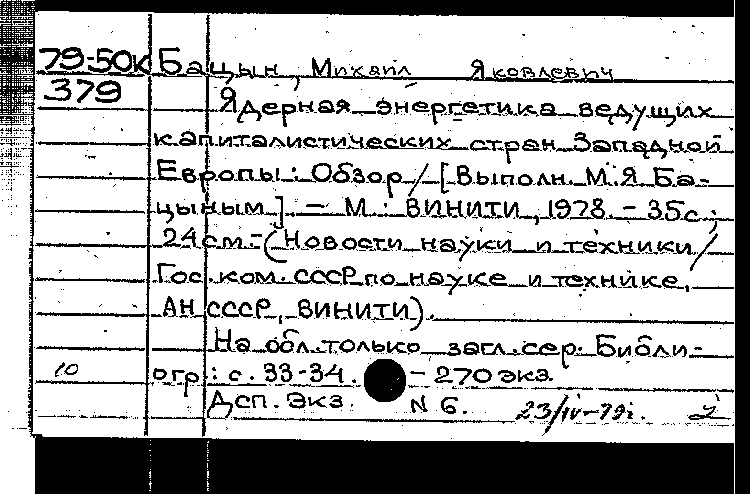 79-50к Бацын, Михаил Яковлевич
379 Ядерная энергетика ведущих
капиталистических стран Западной
Европы: Обзор / [Выполн. М.Я. Ба-
цыным]. - М.: ВИНИТИ, 1978. - 35с.;
24см. - (Новости науки и техники /
Гос. ком. СССР по науке и технике,
АН СССР, ВИНИТИ).
На обл. только загл. сер. Библи-
10 огр.: с. 33-34. - 270 экз.
Дсп. Экз. N 6. 23/IV-79г. 2